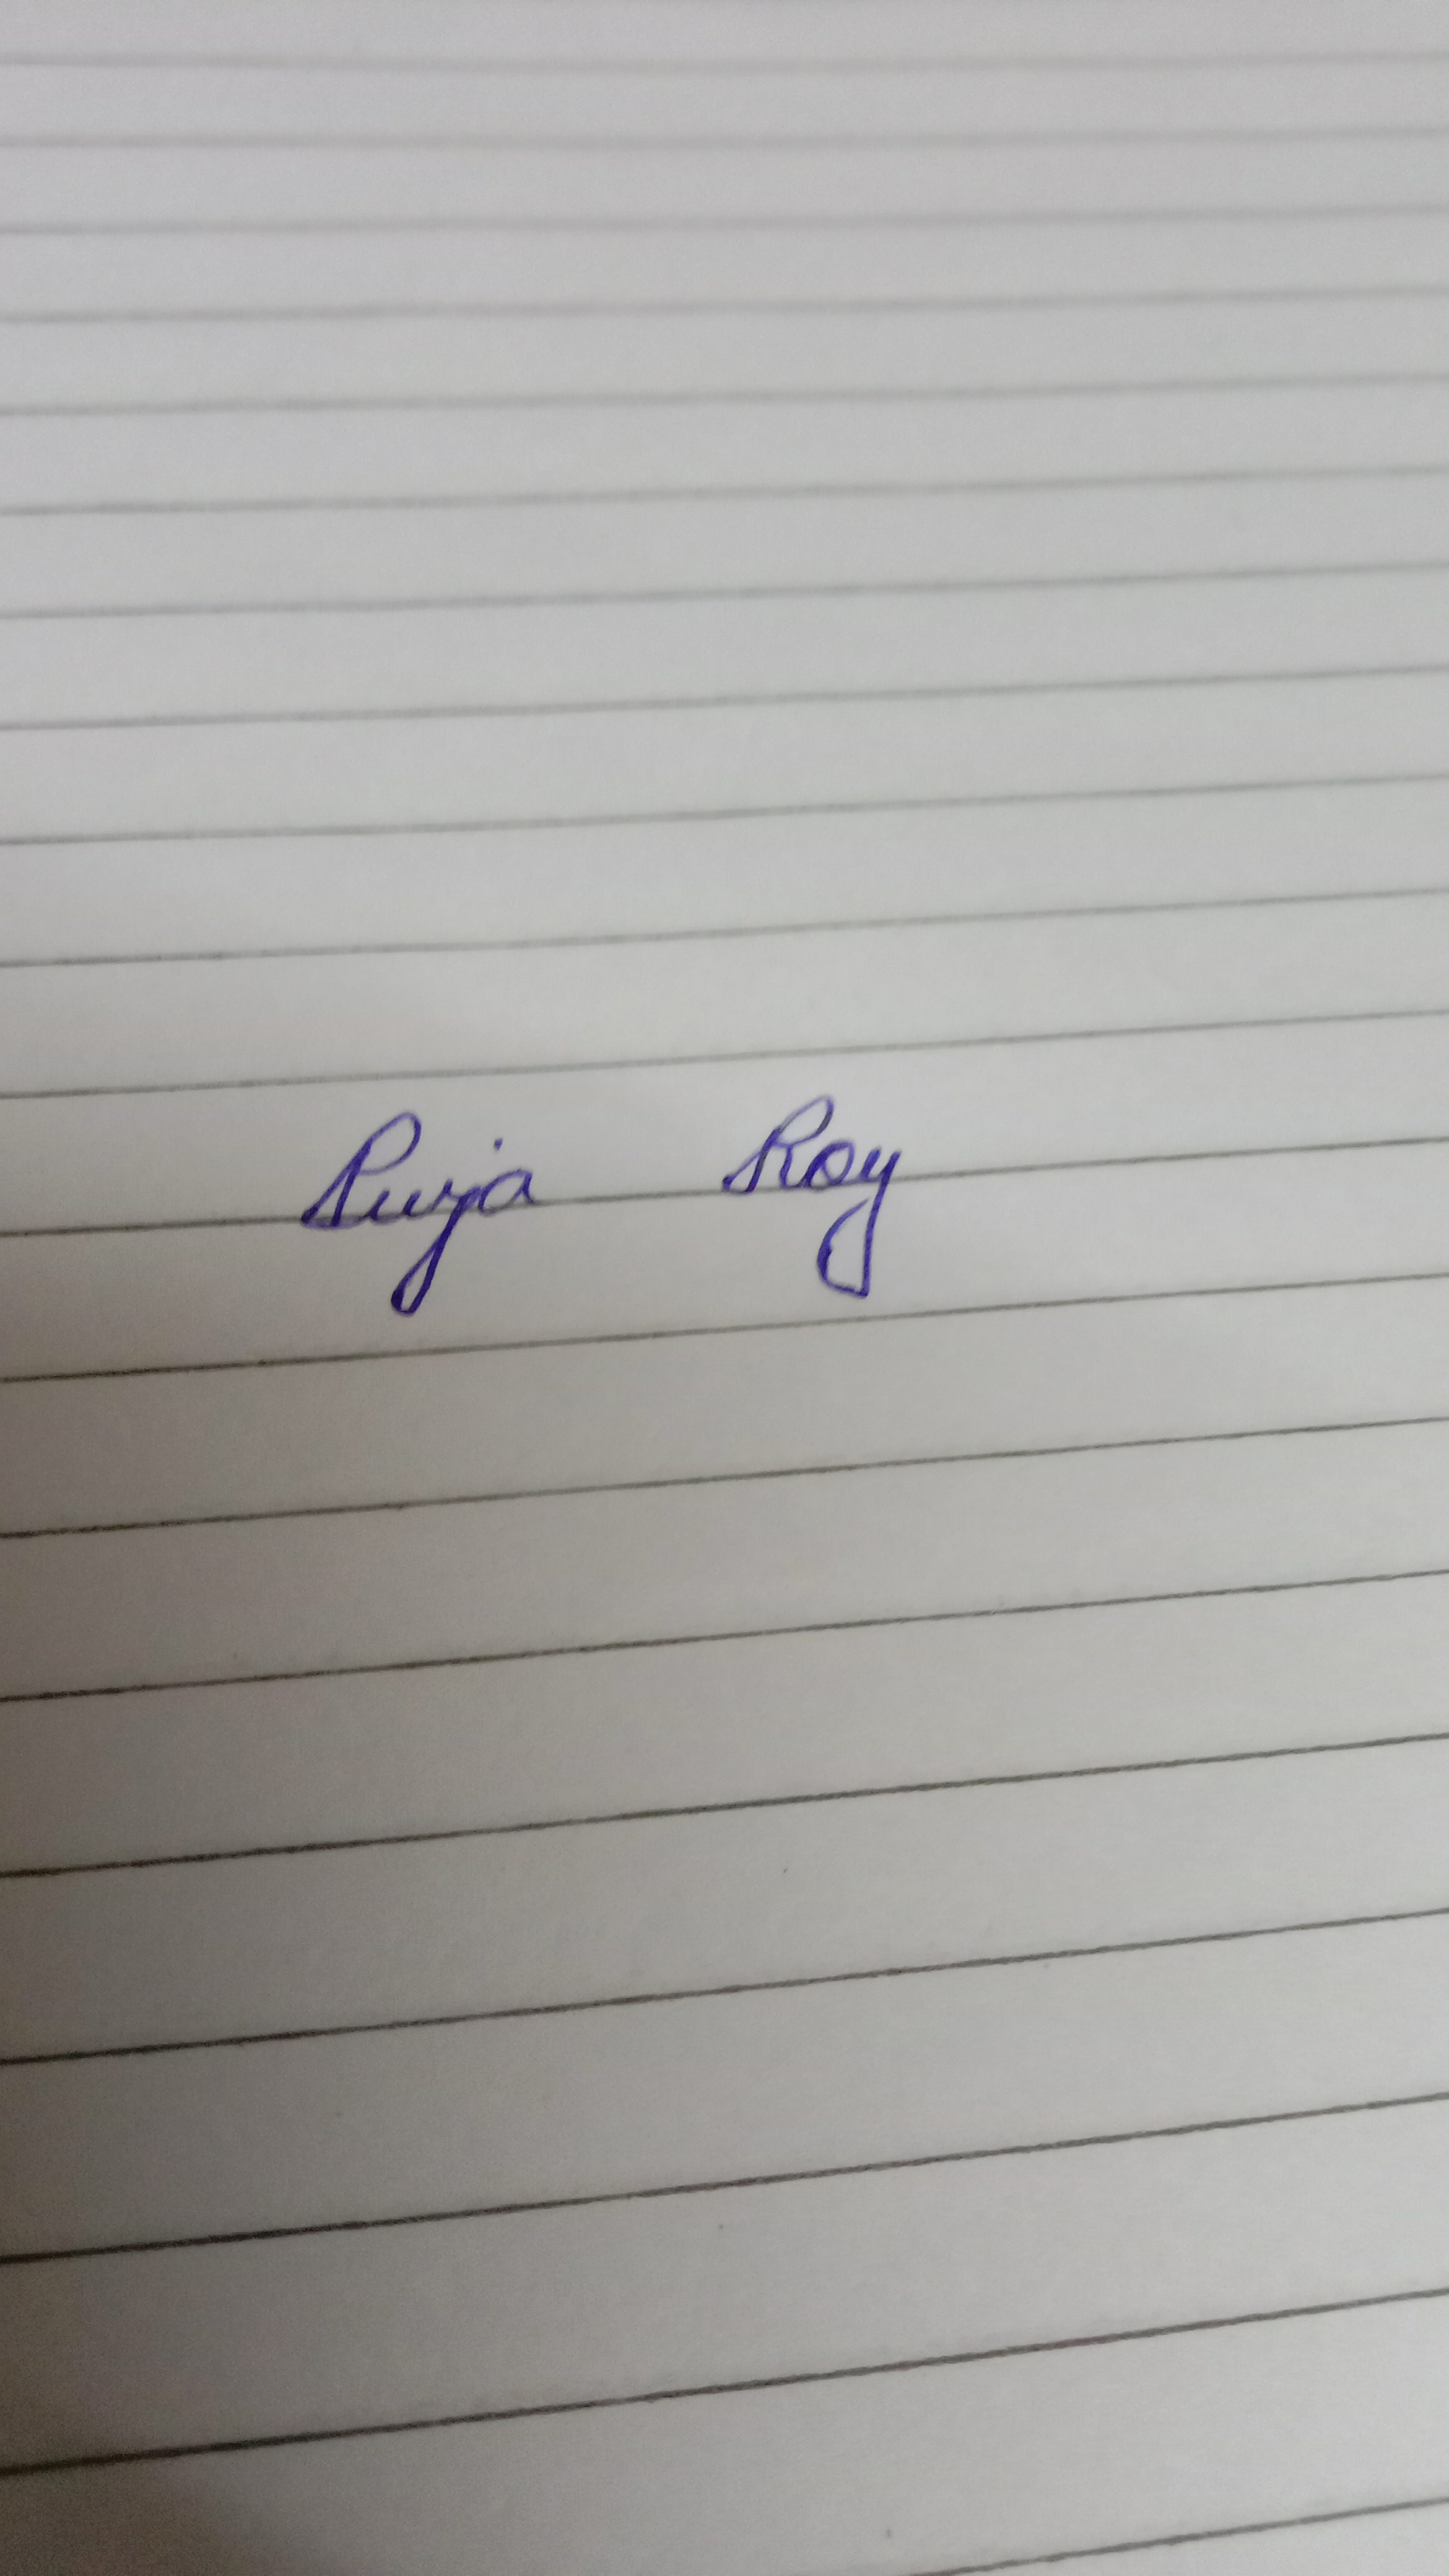 Puja Roy